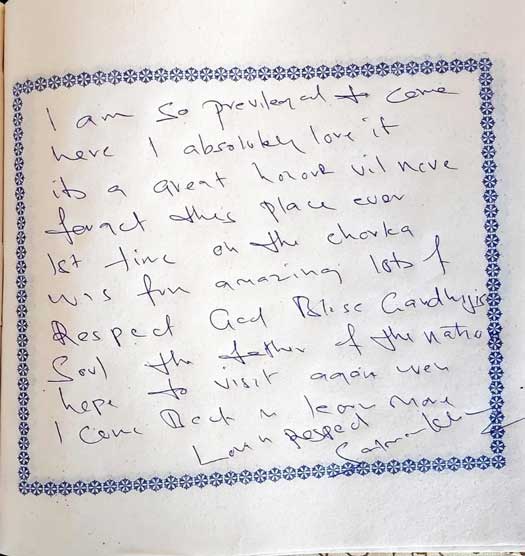 I am so previlegd to come
here I absolutely love it
its a great honour vil neve
forget this place ever
1st time on the charka
was fun amazing lots of
Respect God Bless Gandhijis
Soul the father of the natio
hope to visit again wen
I come Back n learn more
Lov n Respect